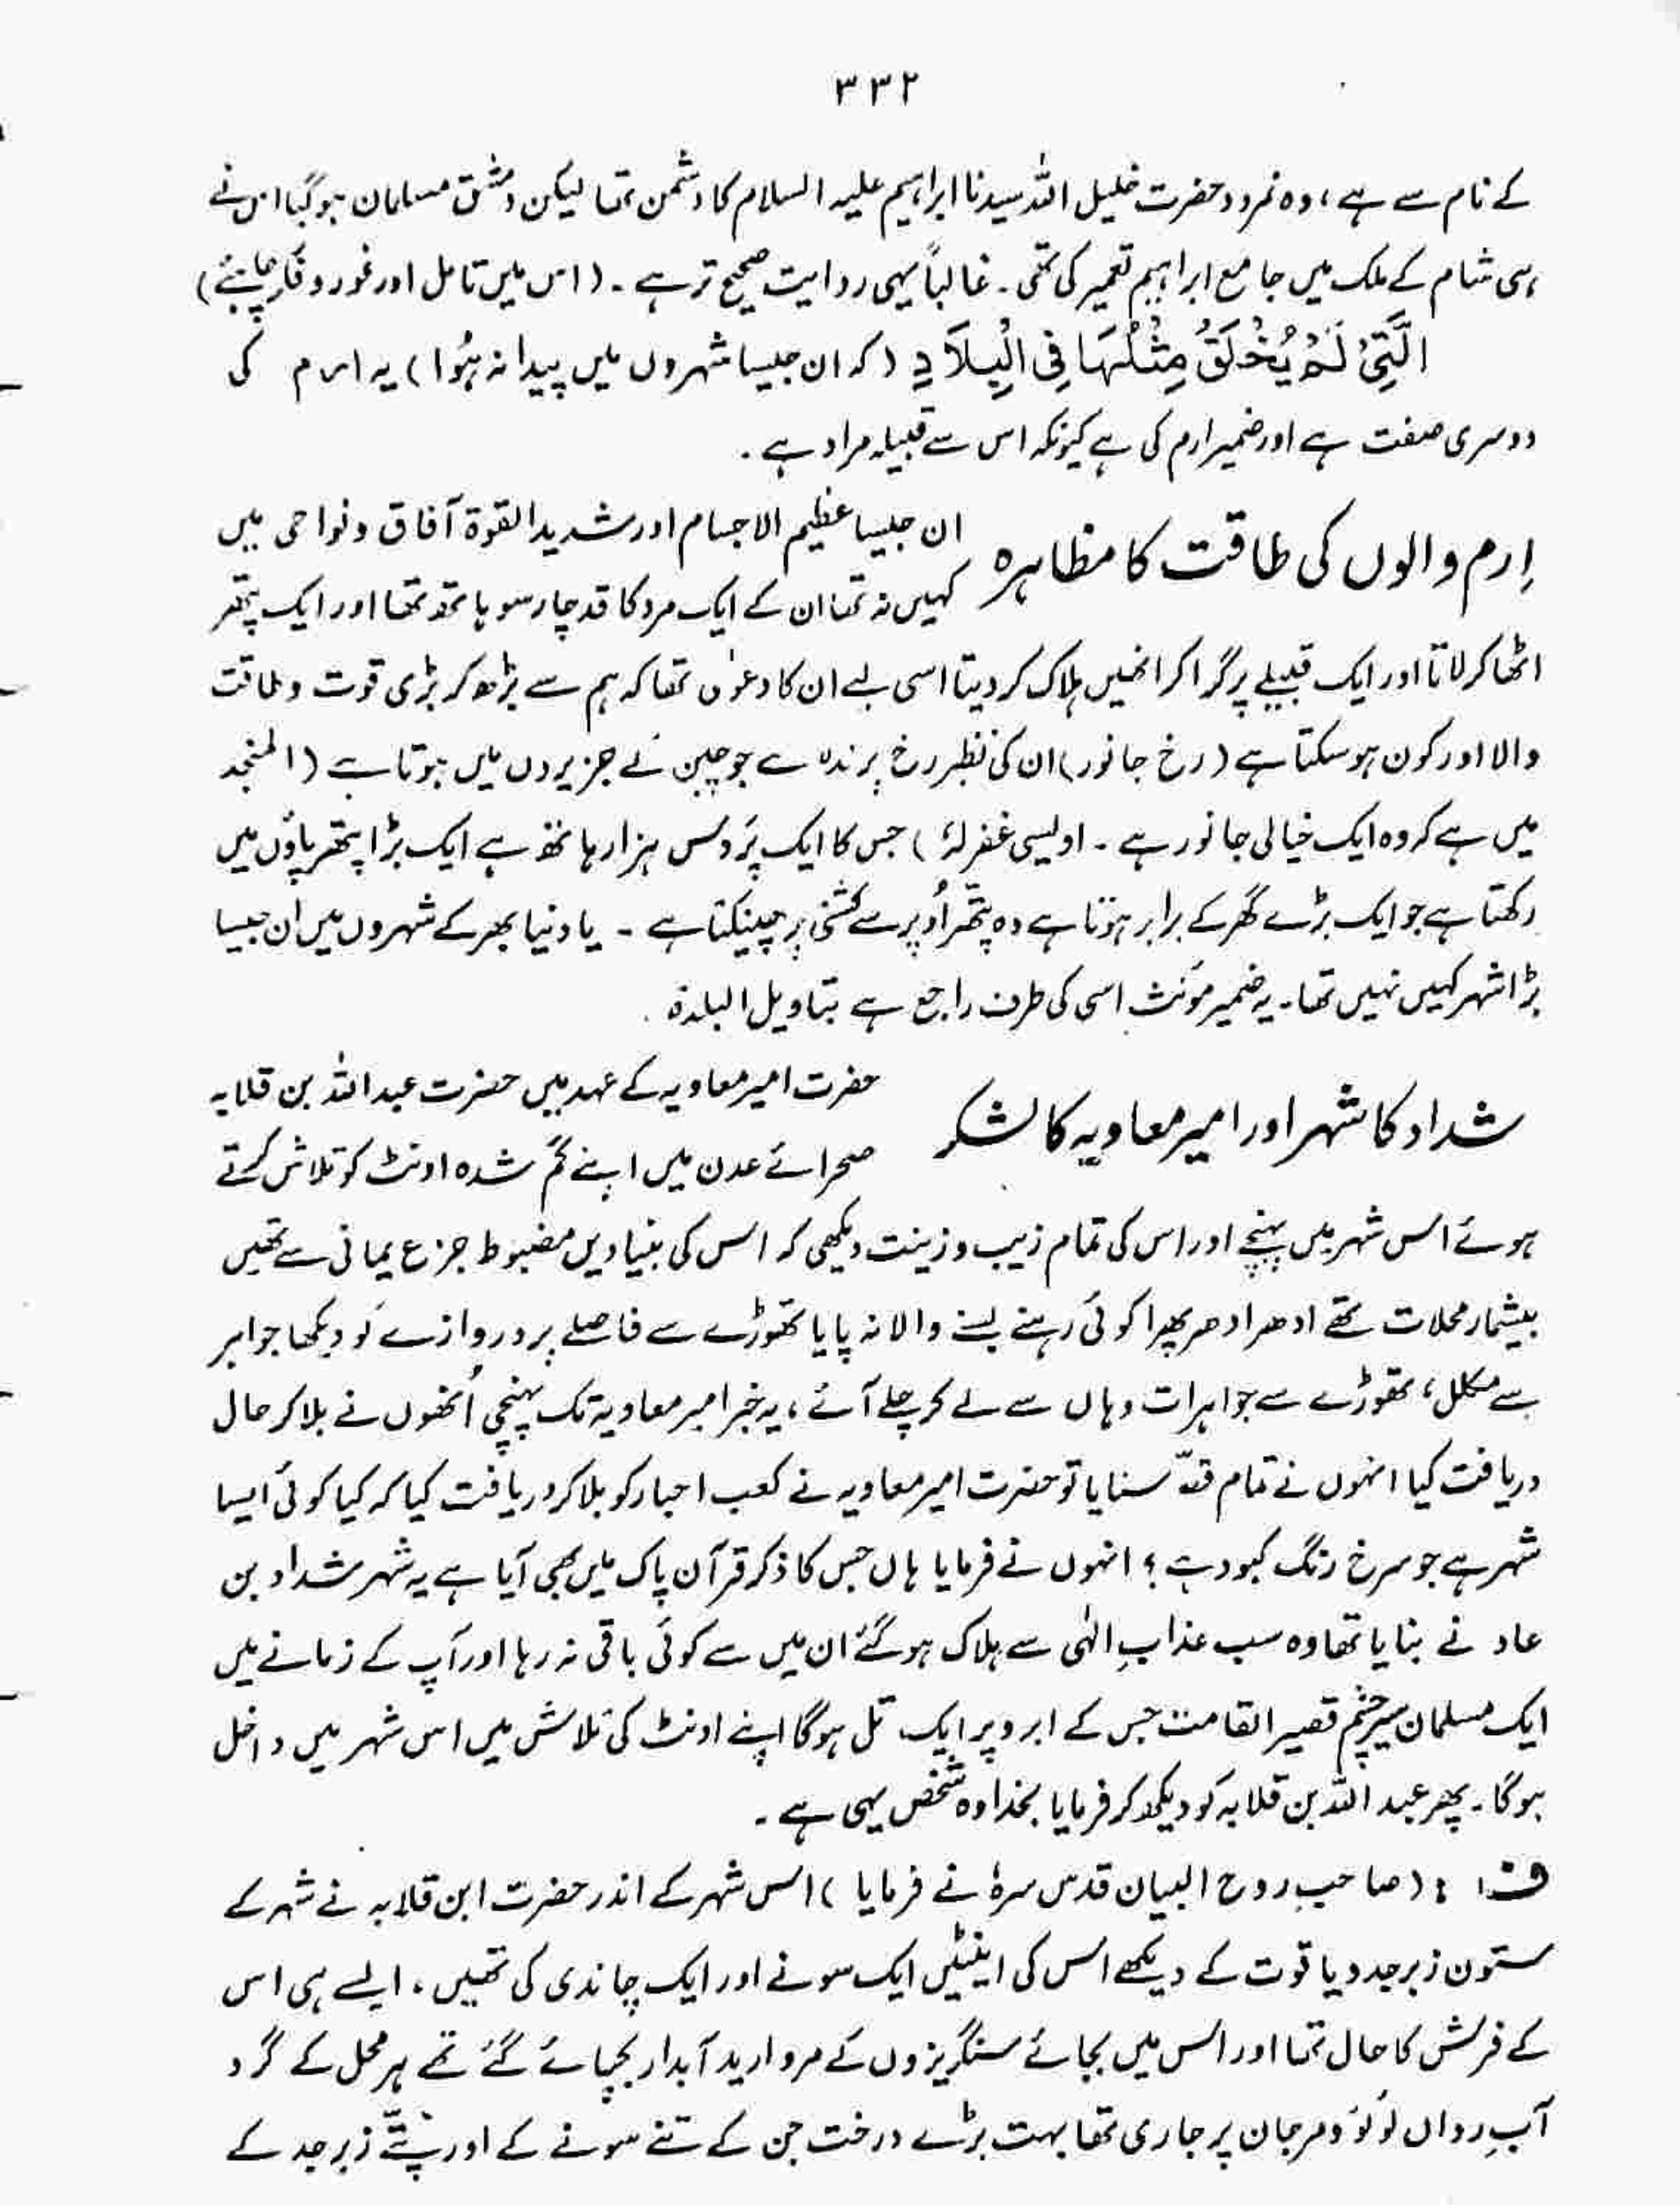 ۳۳۲
کے نام سے ہے، وہ نمرود حضرت خلیل اللہ سیدنا ابراہیم علیہ السلام کا دشمن تھا لیکن دمشق مسلمان ہوگیا اس نے
ہی شام کے ملک میں جامع ابراہیم تعمیر کی تھی۔ غالباً یہی روایت صحیح تر ہے۔ (اس میں تامل اور غور و فکر چاہیئے)
الَّتِیْ لَمْ یُخْلَقْ مِثْلُہَا فِی الْبِلَادِ (کہ ان جیسا شہروں میں پیدا نہ ہُوا) یہ ارم کی
دوسری صفت ہے اور ضمیر ارم کی ہے کیونکہ اس سے قبیلہ مراد ہے۔
اِرم والوں کی طاقت کا مظاہرہ
ان جیسا عظیم الاجسام اور شدید القوۃ آفاق و نواحی میں
کہیں نہ تھا ان کے ایک مرد کا قد چار سو ہاتھ تھا اور ایک پتھر
اٹھا کر لاتا اور ایک قبیلے پر گرا کر انھیں ہلاک کر دیتا اسی لیے ان کا دعوٰی تھا کہ ہم سے بڑھ کر بڑی قوت و طاقت
والا اور کون ہوسکتا ہے (رخ جانور) ان کی نظیر رخ پرندہ ہے جو چین کے جزیروں میں ہوتا ہے (المنجد
میں ہے کہ وہ ایک خیالی جانور ہے۔ اویسی غفرلہٗ) جس کا ایک پَر دس ہزار ہاتھ ہے ایک بڑا پتھر پاؤں میں
رکھتا ہے جو ایک بڑے گھر کے برابر ہوتا ہے وہ پتھر اُوپر سے کشتی پر پھینکتا ہے۔ یا دنیا بھر کے شہروں میں ان جیسا
بڑا شہر کہیں نہیں تھا۔ یہ ضمیر مؤنث اسی کی طرف راجع ہے بتاویل البلدۃ۔
شداد کا شہر اور امیر معاویہ کا لشکر
حضرت امیر معاویہ کے عہد میں حضرت عبداللہ بن قلابہ
صحرائے عدن میں اپنے گم شدہ اونٹ کو تلاش کرتے
ہوئے اس شہر میں پہنچے اور اس کی تمام زیب و زینت دیکھی کہ اس کی بنیادیں مضبوط جزع یمانی سے تھیں
بیشمار محلات تھے ادھر ادھر پھرا کوئی رہنے بسنے والا نہ پایا تھوڑے سے فاصلے پر دروازے کو دیکھا جواہر
سے مکلل، تھوڑے سے جواہرات وہاں سے لے کر چلے آئے، یہ خبر امیر معاویہ تک پہنچی اُنھوں نے بلا کر حال
دریافت کیا انہوں نے تمام قصّہ سنایا تو حضرت امیر معاویہ نے کعب احبار کو بلا کر دریافت کیا کہ کیا کوئی ایسا
شہر ہے جو سرخ رنگ کبود ہے؟ انہوں نے فرمایا ہاں جس کا ذکر قرآن پاک میں بھی آیا ہے یہ شہر شداد بن
عاد نے بنایا تھا وہ سب عذابِ الٰہی سے ہلاک ہوگئے ان میں سے کوئی باقی نہ رہا اور آپ کے زمانے میں
ایک مسلمان چشم قصیر القامت جس کے ابرو پر ایک تل ہوگا اپنے اونٹ کی تلاش میں اس شہر میں داخل
ہوگا۔ پھر عبداللہ بن قلابہ کو دیکھ کر فرمایا بخدا وہ شخص یہی ہے۔
ف ۱: (صاحب روح البیان قدس سرہٗ نے فرمایا) اس شہر کے اندر حضرت ابن قلابہ نے شہر کے
ستون زبرجد و یاقوت کے دیکھے اس کی اینٹیں ایک سونے اور ایک چاندی کی تھیں۔ ایسے ہی اس
کے فرش کا حال تھا اور اس میں بجائے سنگریزوں کے مروارید آبدار بچھائے گئے تھے ہر محل کے گرد
آبِ رواں لؤلؤ و مرجان پر جاری تھا بہت بڑے درخت جن کے تنے سونے کے اور پتّے زبرجد کے